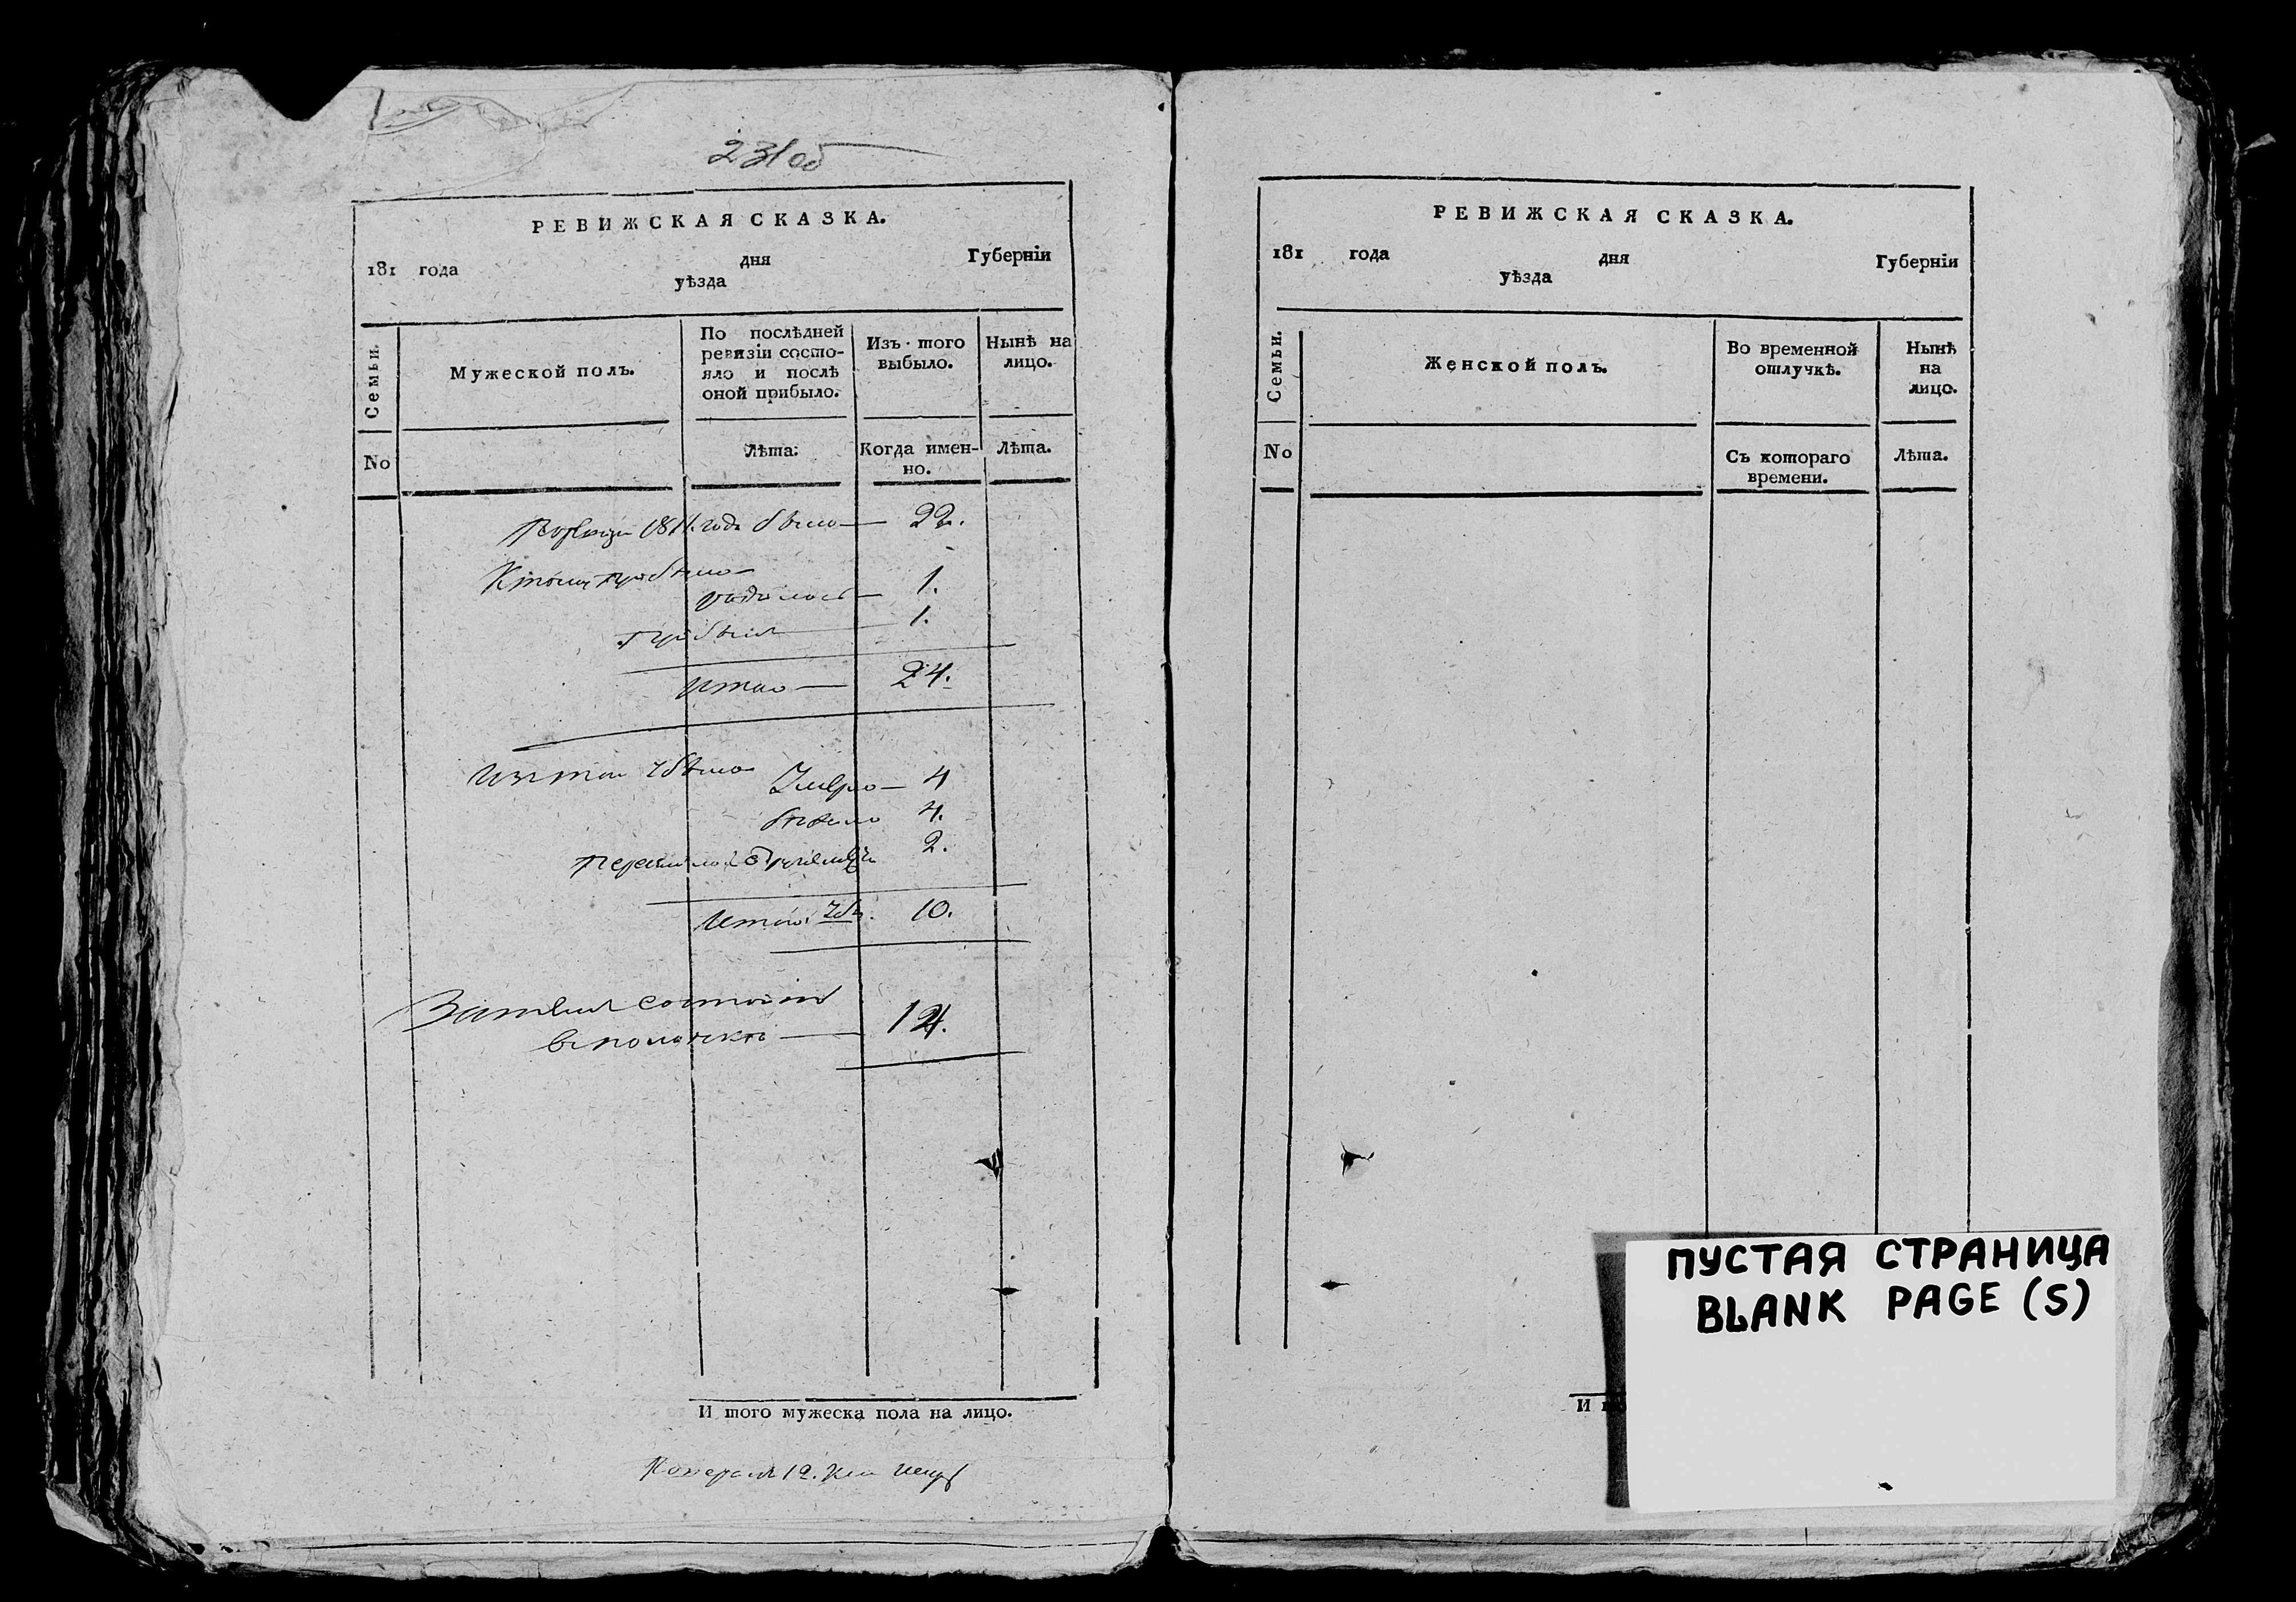 231об
РЕВИЖСКАЯ СКАЗКА.
181 года дня Губерніи
уѣзда
Семьи.
Мужеской полъ.
По послѣдней ревизіи состояло и послѣ оной прибыло.
Изъ того выбыло.
Нынѣ на лицо.
No
Лѣта:
Когда именно.
Лѣта.
1811. года было 22.
К тому прибыло
родилось 1.
прибыл 1.
Итого 24.
Из того убыло
Умерло 4
4.
2.
Итого 10.
Затем состоит
14.
И того мужеска пола на лицо.
12.
РЕВИЖСКАЯ СКАЗКА.
181 года дня Губерніи
уѣзда
Семьи.
Женской полъ.
Во временной отлучкѣ.
Нынѣ на лицо.
No
Съ котораго времени.
Лѣта.
И
ПУСТАЯ СТРАНИЦА
BLANK PAGE (S)